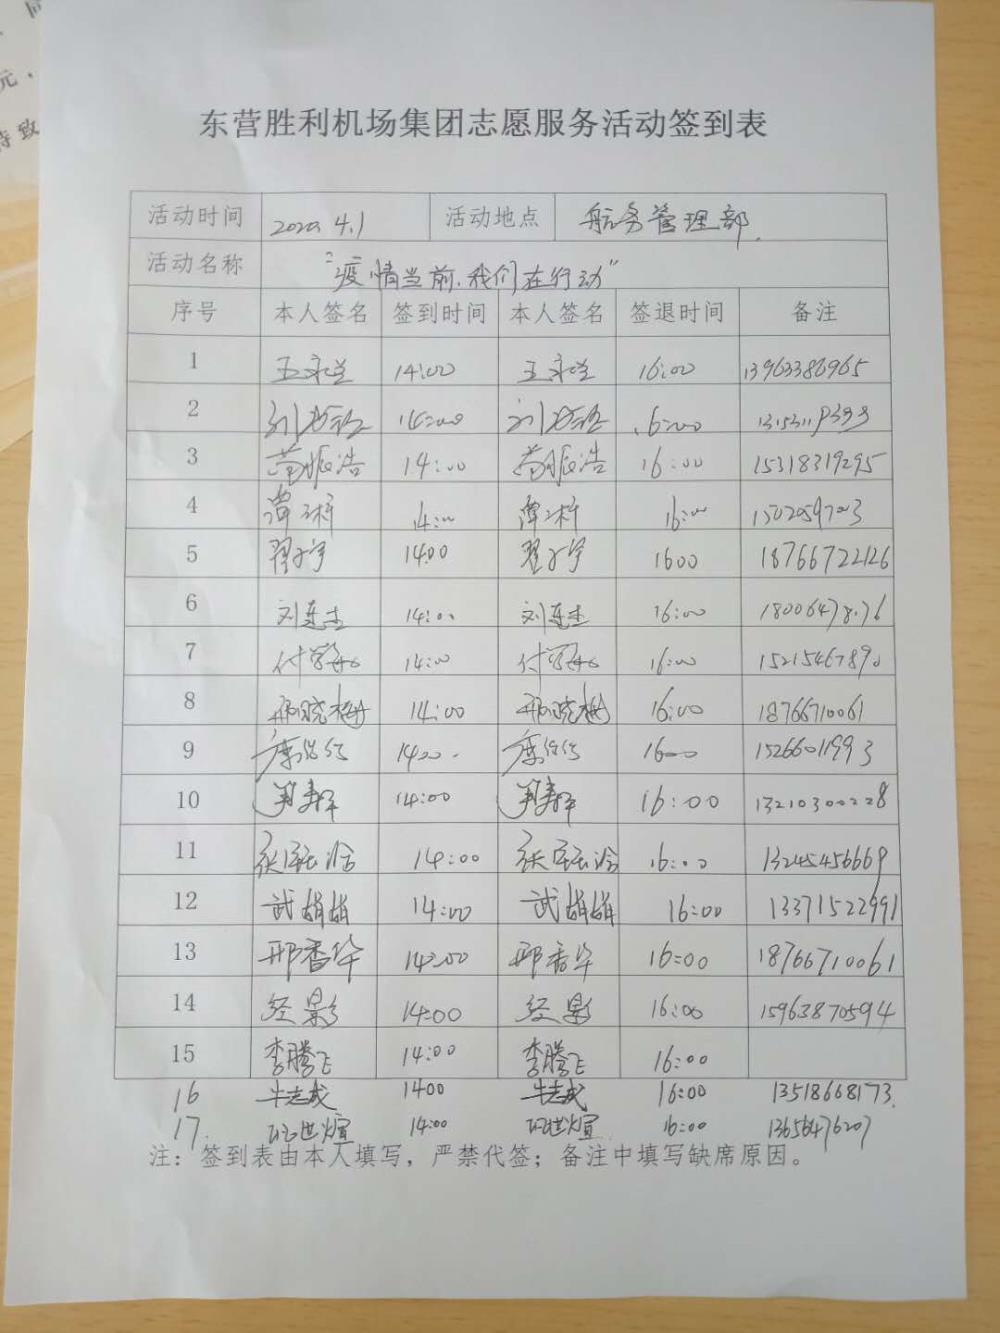 同
元，
持致
东营胜利机场集团志愿服务活动签到表
活动时间 2020.4.1 活动地点 航务管理部.
活动名称 "疫情当前.我们在行动"
序号 本人签名 签到时间 本人签名 签退时间 备注
1 王永兰 14:00 王永兰 16:00 13963386965
2 14:00 16:00
3 苟振浩 14:00 苟振浩 16:00 15318319295
4 谭梓 14:00 谭梓 16:00
5 翟子宇 14:00 翟子宇 1600 18766722126
6 刘连杰 14:00 刘连杰 16:00
7 14:00 16:00 15215467890
8 邢晓梅 14:00 邢晓梅 16:00 18766710061
9 1400 1600 15266011993
10 14:00 16:00 13210300228
11 14:00 16:00 13245456669
12 武娟娟 14:00 武娟娟 16:00 13371522991
13 邢香华 14:00 邢香华 16:00 18766710061
14 经影 14:00 经影 16:00 15963870594
15 李腾飞 14:00 李腾飞 16:00
16 牛志成 1400 牛志成 16:00 13518668173.
17. 14:00 16:00 13656476207
注：签到表由本人填写，严禁代签；备注中填写缺席原因。